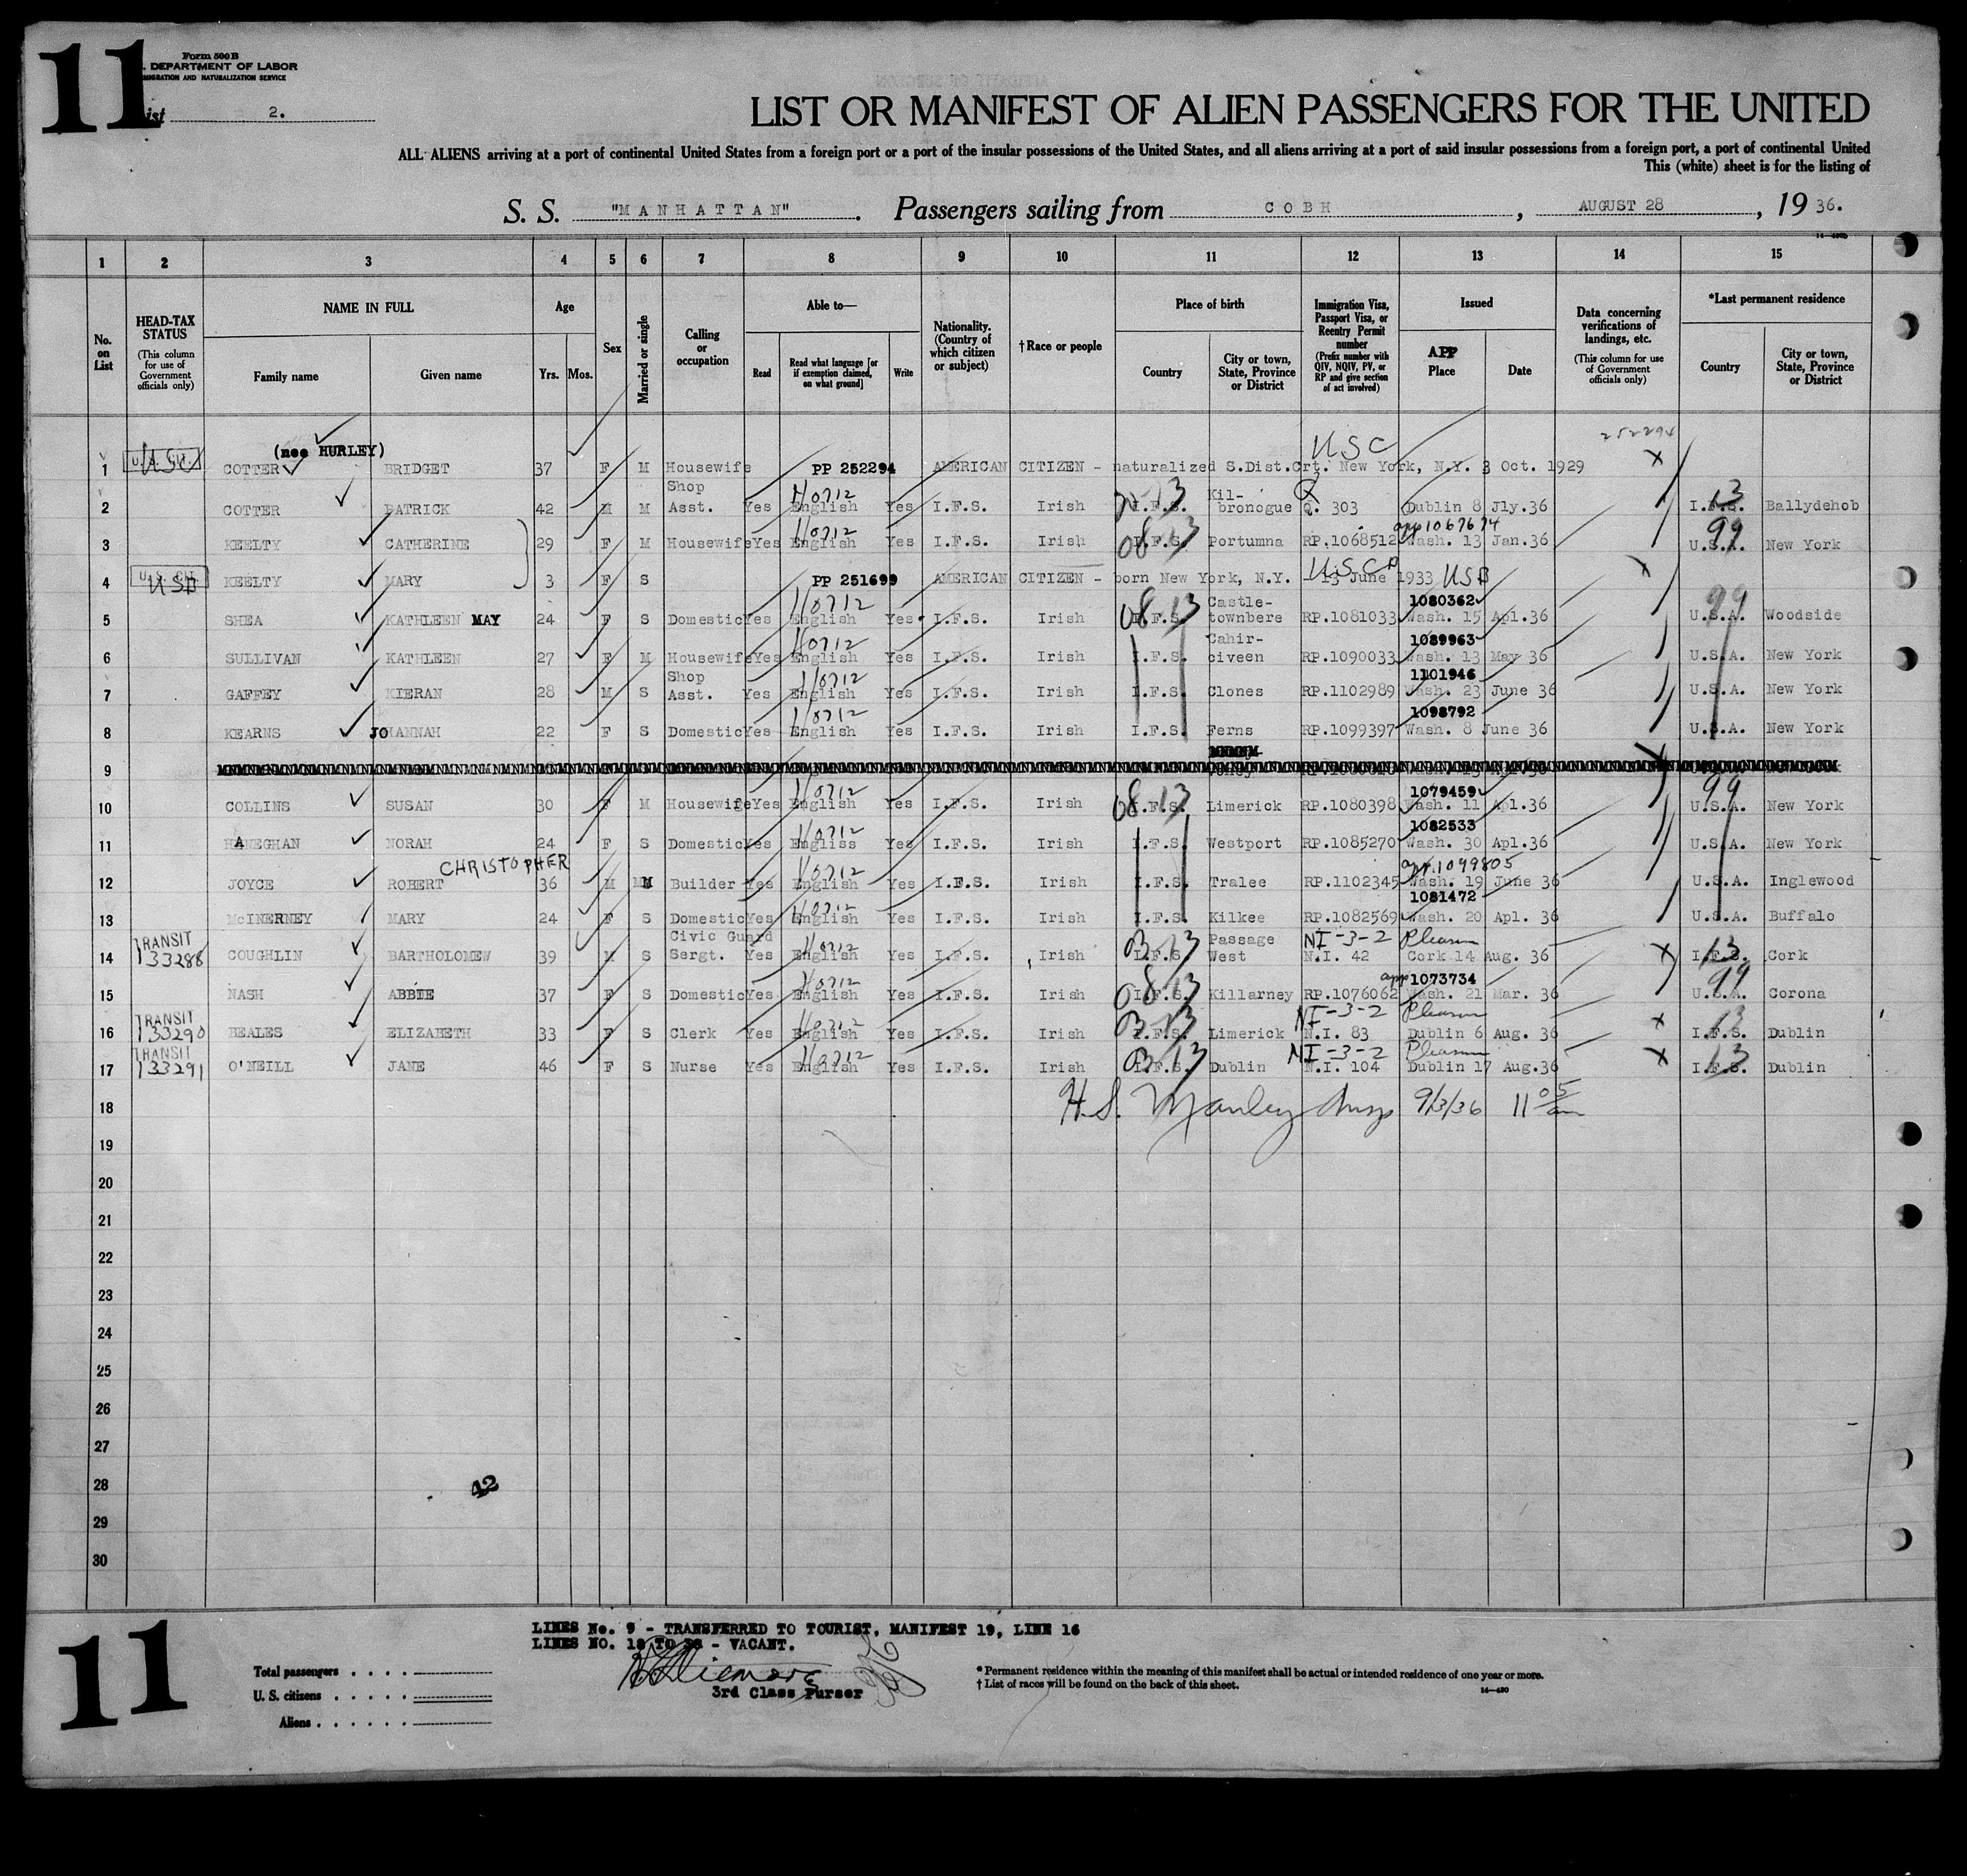 11
Form 500B
DEPARTMENT OF LABOR
MIGRATION AND NATURALIZATION SERVICE
ist 2.
LIST OR MANIFEST OF ALIEN PASSENGERS FOR THE UNITED
ALL ALIENS arriving at a port of continental United States from a foreign port or a port of the insular possessions of the United States, and all aliens arriving at a port of said insular possessions from a foreign port, a port of continental United
This (white) sheet is for the listing of
S. S. "MANHATTAN". Passengers sailing from COBH, AUGUST 28, 19 36.
1 2 3 4 5 6 7 8 9 10 11 12 13 14 15
No. on List
HEAD-TAX STATUS (This column for use of Government officials only)
NAME IN FULL Family name Given name
Age Yrs. Mos.
Sex
Married or single
Calling or occupation
Able to— Read Read what language [or if exemption claimed, on what ground] Write
Nationality. (Country of which citizen or subject)
†Race or people
Place of birth Country City or town, State, Province or District
Immigration Visa, Passport Visa, or Reentry Permit number (Prefix number with QIV, NQIV, PV, or RP and give section of act involved)
Issued APP Place Date
Data concerning verifications of landings, etc. (This column for use of Government officials only)
*Last permanent residence Country City or town, State, Province or District
(nee HURLEY) USC 252294
1 USC COTTER BRIDGET 37 F M Housewife PP 252294 AMERICAN CITIZEN - naturalized S.Dist.Crt. New York, N.Y. 3 Oct. 1929 X
2 COTTER PATRICK 42 M M Shop Asst. Yes English Yes I.F.S. Irish I.F.S. Kil-bronogue Q. 303 Dublin 8 Jly.36 I.F.S. Ballydehob
app 1067674
3 KEELTY CATHERINE 29 F M Housewife Yes English Yes I.F.S. Irish I.F.S. Portumna RP.1068512 Wash. 13 Jan.36 U.S.A. New York
4 USB KEELTY MARY 3 F S PP 251699 AMERICAN CITIZEN - born New York, N.Y. - 13 June 1933 USB X
1080362
5 SHEA KATHLEEN MAY 24 F S Domestic Yes English Yes I.F.S. Irish I.F.S. Castle-townbere RP.1081033 Wash. 15 Apl.36 U.S.A. Woodside
1089963
6 SULLIVAN KATHLEEN 27 F M Housewife Yes English Yes I.F.S. Irish I.F.S. Cahir-civeen RP.1090033 Wash. 13 May 36 U.S.A. New York
1101946
7 GAFFEY KIERAN 28 M S Shop Asst. Yes English Yes I.F.S. Irish I.F.S. Clones RP.1102989 Wash. 23 June 36 U.S.A. New York
1098792
8 KEARNS JOHANNAH 22 F S Domestic Yes English Yes I.F.S. Irish I.F.S. Ferns RP.1099397 Wash. 8 June 36 U.S.A. New York
9
1079459
10 COLLINS SUSAN 30 F M Housewife Yes English Yes I.F.S. Irish I.F.S. Limerick RP.1080398 Wash. 11 Apl.36 U.S.A. New York
1082533
11 HANEGHAN NORAH 24 F S Domestic Yes Engliss Yes I.F.S. Irish I.F.S. Westport RP.1085270 Wash. 30 Apl.36 U.S.A. New York
CHRISTOPHER app.1099805
12 JOYCE ROBERT 36 M M Builder Yes English Yes I.F.S. Irish I.F.S. Tralee RP.1102345 Wash. 19 June 36 U.S.A. Inglewood
1081472
13 McINERNEY MARY 24 F S Domestic Yes English Yes I.F.S. Irish I.F.S. Kilkee RP.1082569 Wash. 20 Apl. 36 U.S.A. Buffalo
TRANSIT NI-3-2 Pleasure
14 133288 COUGHLIN BARTHOLOMEW 39 M S Civic Guard Sergt. Yes English Yes I.F.S. Irish I.F.S. Passage West N.I. 42 Cork 14 Aug. 36 X I.F.S. Cork
app 1073734
15 NASH ABBIE 37 F S Domestic Yes English Yes I.F.S. Irish I.F.S. Killarney RP.1076062 Wash. 21 Mar. 36 U.S.A. Corona
TRANSIT NI-3-2 Pleasure
16 133290 BEALES ELIZABETH 33 F S Clerk Yes English Yes I.F.S. Irish I.F.S. Limerick N.I. 83 Dublin 6 Aug. 36 X I.F.S. Dublin
TRANSIT NI-3-2 Pleasure
17 133291 O'NEILL JANE 46 F S Nurse Yes English Yes I.F.S. Irish I.F.S. Dublin N.I. 104 Dublin 17 Aug.36 X I.F.S. Dublin
18 H. S. Manley Insp 9/3/36 11 05 am
19
20
21
22
23
24
25
26
27
28 42
29
30
LINES No. 9 - TRANSFERRED TO TOURIST, MANIFEST 19, LINE 16
LINES NO. 18 TO 30 - VACANT.
3rd Class Purser
11
Total passengers . . . .
U. S. citizens . . . . .
Aliens . . . . . .
* Permanent residence within the meaning of this manifest shall be actual or intended residence of one year or more.
† List of races will be found on the back of this sheet.
14—430